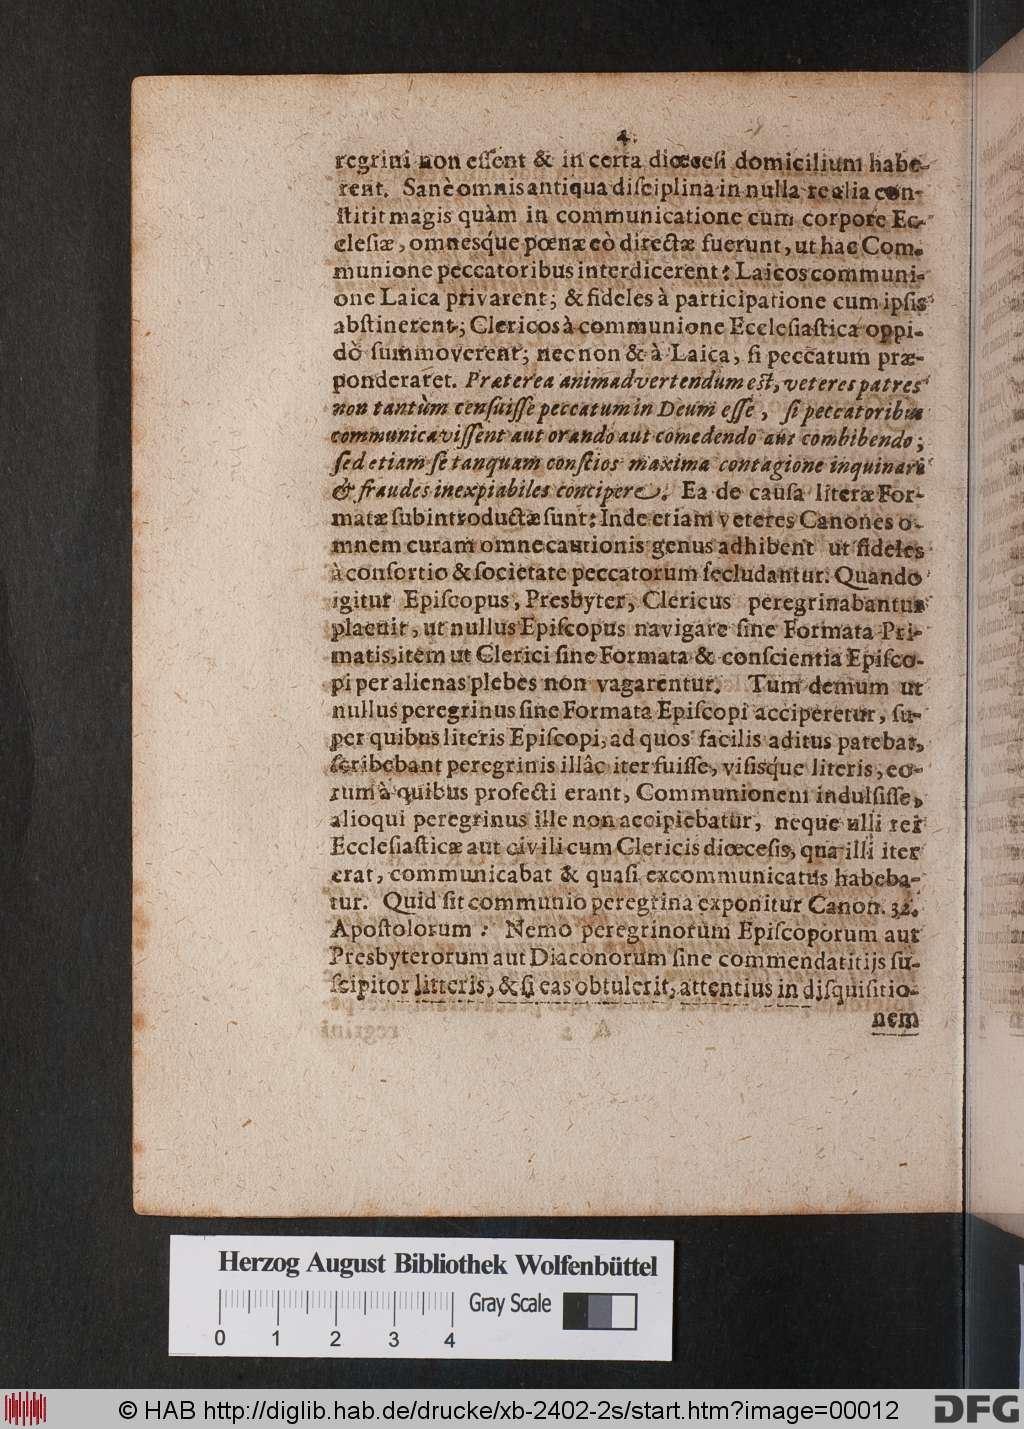 4.
regrini non eſſent & in certa diœceſi domicilium habe-
rent. Sanè omnis antiqua diſciplina in nulla re alia con-
ſtitit magis quàm in communicatione cum corpore Ec-
cleſiæ, omnesque pœnæ eò directæ fuerunt, ut hac Com-
munione peccatoribus interdicerent: Laicos communi-
one Laica privarent; & fideles à participatione cum ipſis
abſtinerent; Clericos à communione Eccleſiaſtica oppi-
dò ſummoverent; nec non & à Laica, ſi peccatum præ-
ponderaret. Præterea animadvertendum est, veteres patres
non tantùm cenſuiſſe peccatum in Deum eſſe, ſi peccatoribus
communicaviſſent aut orando aut comedendo aut combibendo;
ſed etiam ſe tanquam conſcios maxima contagione inquinari
& fraudes inexpiabiles concipere. Ea de cauſa literæ For-
matæ ſubintroductæ ſunt: Inde etiam veteres Canones o-
mnem curam omne cautionis genus adhibent ut fideles
à conſortio & ſocietate peccatorum ſecludantur. Quando
igitur Epiſcopus, Presbyter, Clericus peregrinabantur
placuit, ut nullus Epiſcopus navigare ſine Formata Pri-
matis, item ut Clerici ſine Formata & conſcientia Epiſco-
pi per alienas plebes non vagarentur. Tum demum ut
nullus peregrinus ſine Formata Epiſcopi acciperetur, ſu-
per quibus literis Epiſcopi, ad quos facilis aditus patebat,
ſcribebant peregrinis illâc iter fuiſſe, viſisque literis, eo-
rum à quibus profecti erant, Communionem indulſiſſe,
alioqui peregrinus ille non accipiebatur, neque ulli rei
Eccleſiaſticæ aut civili cum Clericis diœceſis, qua illi iter
erat, communicabat & quaſi excommunicatus habeba-
tur. Quid ſit communio peregrina exponitur Canon. 32.
Apoſtolorum: Nemo peregrinorum Epiſcoporum aut
Presbyterorum aut Diaconorum ſine commendatitijs ſu-
ſcipitor litteris, & ſi eas obtulerit, attentius in diſquiſitio-
nem
Herzog August Bibliothek Wolfenbüttel
Gray Scale
0 1 2 3 4
© HAB http://diglib.hab.de/drucke/xb-2402-2s/start.htm?image=00012
DFG